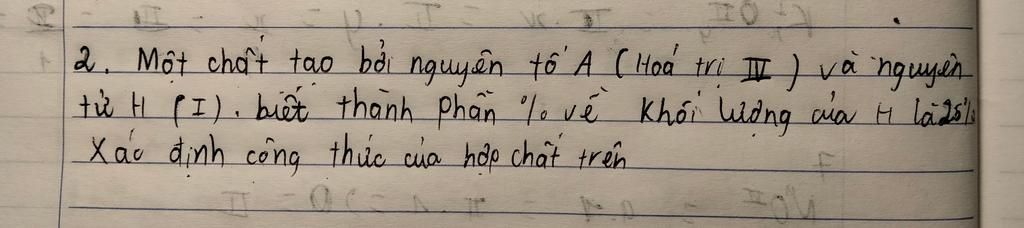 2. Một chất tạo bởi nguyên tố A (Hoá trị IV) và nguyên
tử H (I). biết thành phần % về khối lượng của H là 25%
Xác định công thức của hợp chất trên